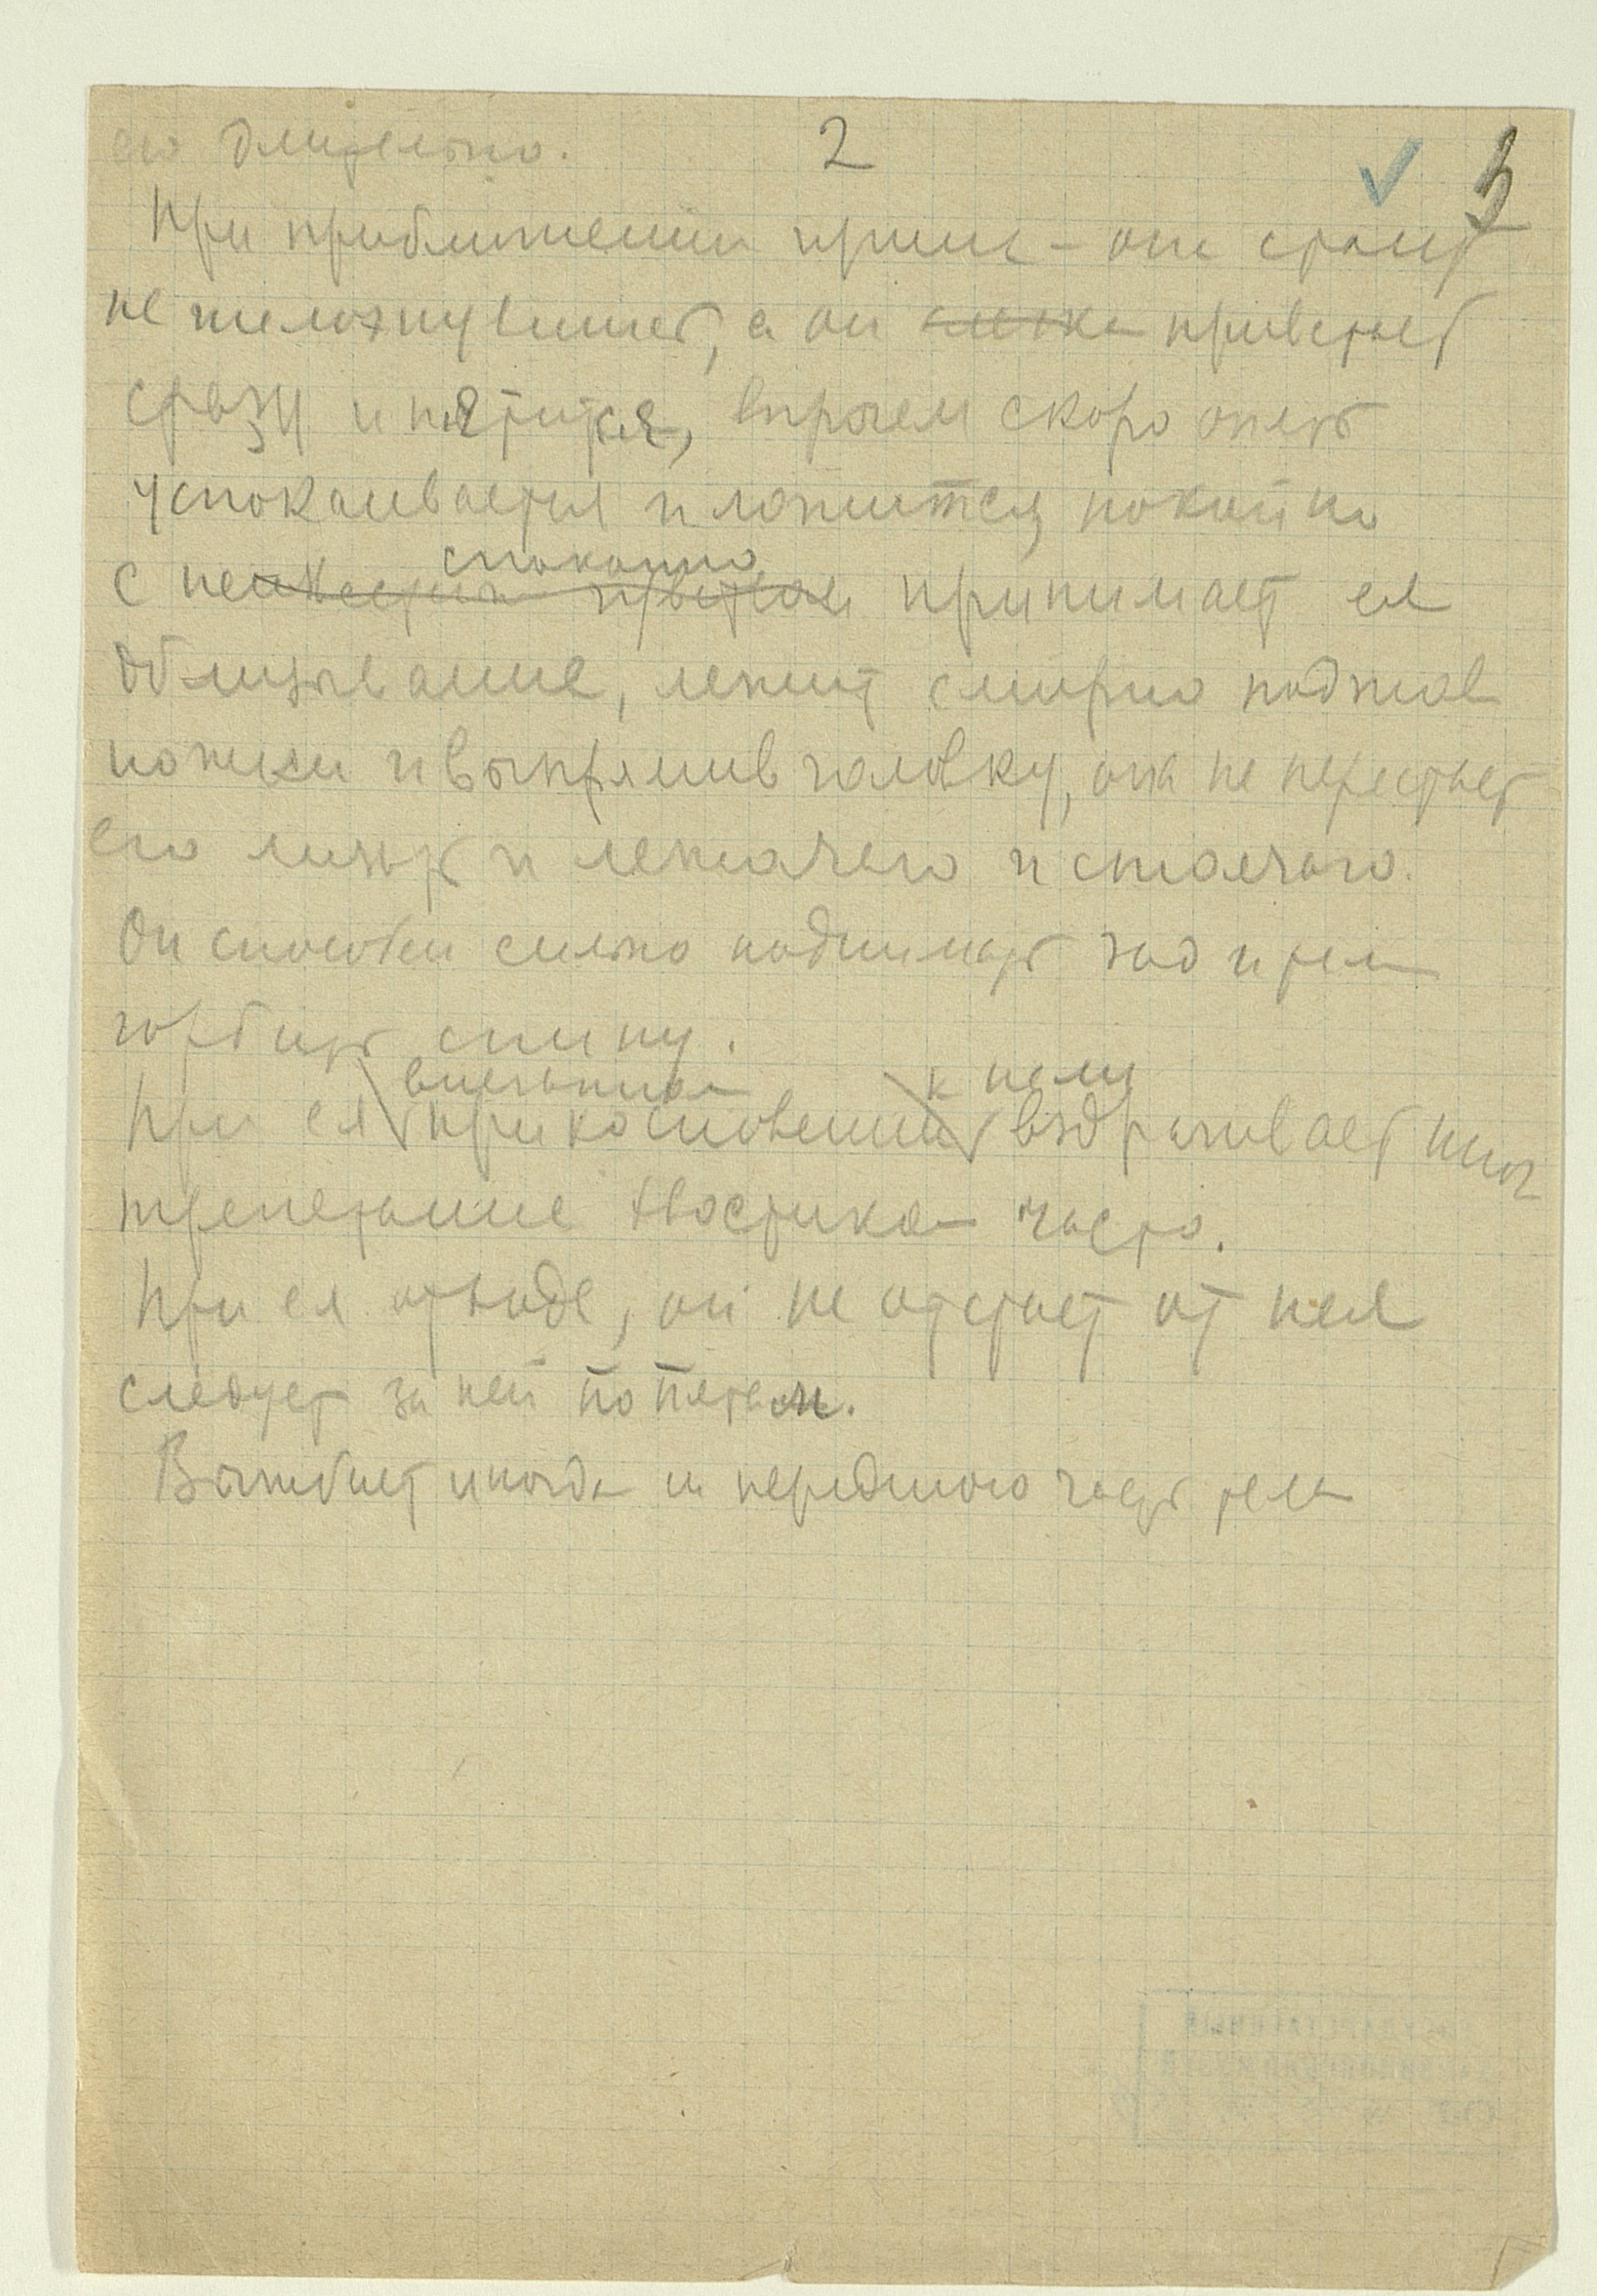 его длительно. 2 3
При приближении крысы – она стоит
не шелохнувшись, а он ~~слегка~~ привстает
сразу и пятится, впрочем скоро опять
успокаивается и ложится покойно
спокойно
с принимает ея
облизывание, лежит смирно поджав
ножки и выпрямив головку, она не перестает
его лизать и лежачего и стоячаго.
Он способен сильно поднимать зад и тем
горбить спину.
внезапном к нему
При ея прикосновении вздрагивает
трепетание хвостика часто.
При ея отходе, он не отстает от нея
следует за ней по пятам.
Выгибает иногда и переднюю часть тела